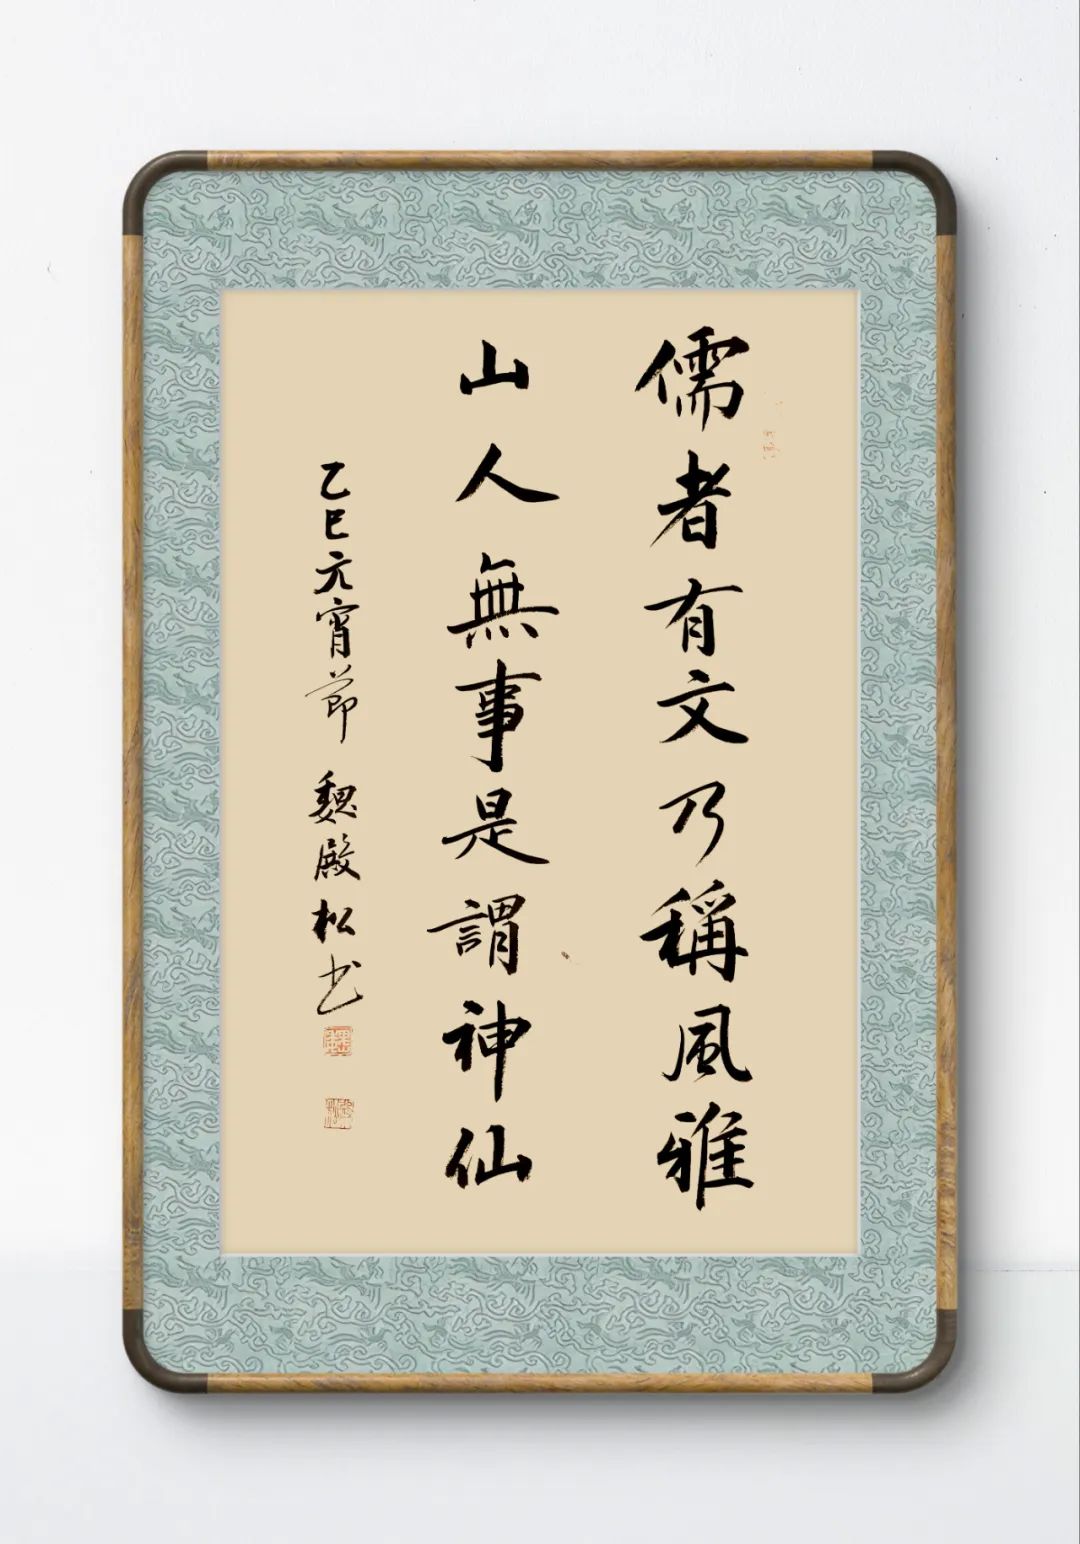 儒者有文乃稱風雅
山人無事是謂神仙
乙巳元宵節 魏殿松书